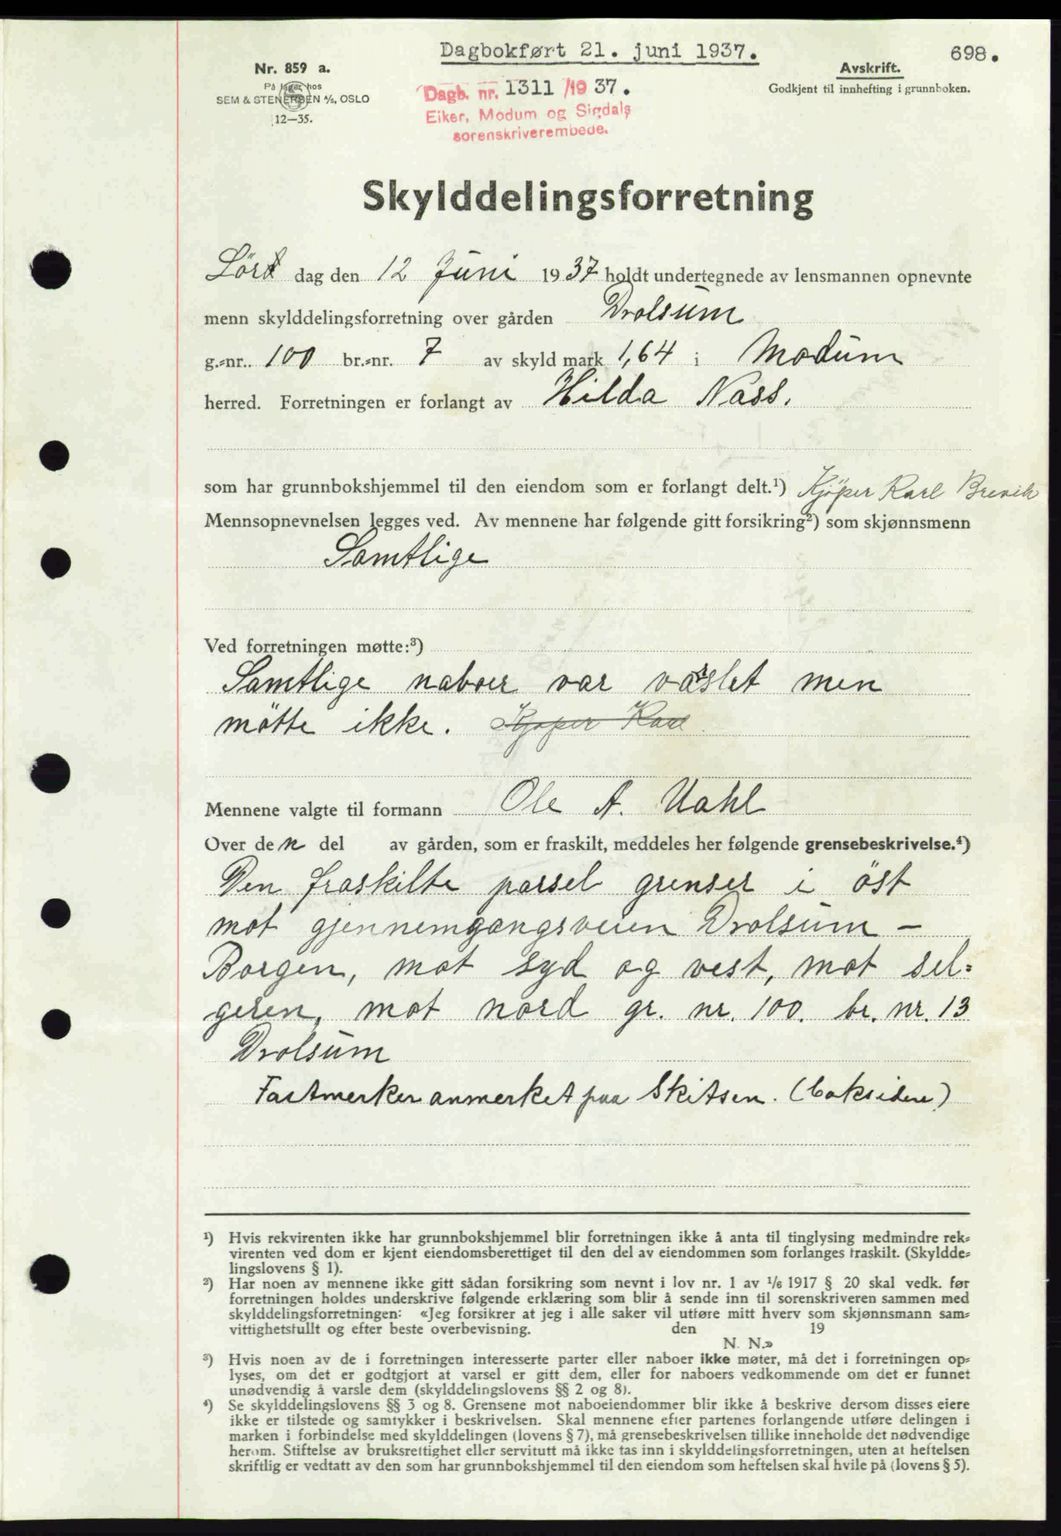 Dagbokført 21. juni 1937.
698.
Nr. 859 a.
På lager hos
SEM & STENERSEN A/S, OSLO
12—35.
Dagb. nr. 1311 /19 37.
Eiker, Modum og Sigdals
sorenskriverembede.
Avskrift.
Godkjent til innhefting i grunnboken.
Skylddelingsforretning
Lör dag den 12 Juni 19 37 holdt undertegnede av lensmannen opnevnte
menn skylddelingsforretning over gården Drolsum
g.-nr.. 100 br.-nr. 7 av skyld mark 1,64 i Modum
herred. Forretningen er forlangt av Hilda Nass.
som har grunnbokshjemmel til den eiendom som er forlangt delt.¹) Kjöper Karl Brevik
Mennsopnevnelsen legges ved. Av mennene har følgende gitt forsikring²) som skjønnsmenn
Samtlige
Ved forretningen møtte:³)
Samtlige naboer var varslet men
mötte ikke. Kjöper Karl
Mennene valgte til formann Ole A. Uahl
Over den del av gården, som er fraskilt, meddeles her følgende grensebeskrivelse.⁴)
Den fraskilte parsel grenser i öst
mot gjennemgangsveien Drolsum –
Borgen, mot syd og vest, mot sel-
geren, mot nord gr. nr. 100. br. nr. 13
Drolsum
Fastmerker anmerket paa Skitsen. (baksiden)
¹) Hvis rekvirenten ikke har grunnbokshjemmel blir forretningen ikke å anta til tinglysing medmindre rek-
virenten ved dom er kjent eiendomsberettiget til den del av eiendommen som forlanges fraskilt. (Skyldde-
lingslovens § 1).
²) Har noen av mennene ikke gitt sådan forsikring som nevnt i lov nr. 1 av ¹/₆ 1917 § 20 skal vedk. før
forretningen holdes underskrive følgende erklæring som blir å sende inn til sorenskriveren sammen med
skylddelingsforretningen: «Jeg forsikrer at jeg i alle saker vil utføre mitt hverv som skjønnsmann sam-
vittighetsfullt og efter beste overbevisning. den 19
N. N.»
³) Hvis noen av de i forretningen interesserte parter eller naboer ikke møter, må det i forretningen op-
lyses, om det er godtgjort at varsel er gitt dem, eller for naboers vedkommende om det er funnet
unødvendig å varsle dem (skylddelingslovens §§ 2 og 8).
⁴) Se skylddelingslovens §§ 3 og 8. Grensene mot naboeiendommer blir ikke å beskrive dersom disses eiere
ikke er tilstede og samtykker i beskrivelsen. Skal mennene efter partenes forlangende utføre delingen i
marken i forbindelse med skylddelingen (lovens § 7), må grensebeskrivelsen tillike inneholde det nødvendige
herom. Stiftelse av bruksrettighet eller servitutt må ikke tas inn i skylddelingsforretningen, uten at heftelsen
skriftlig er vedtatt av den som har grunnbokshjemmel til den eiendom som heftelsen skal hvile på (lovens § 5).